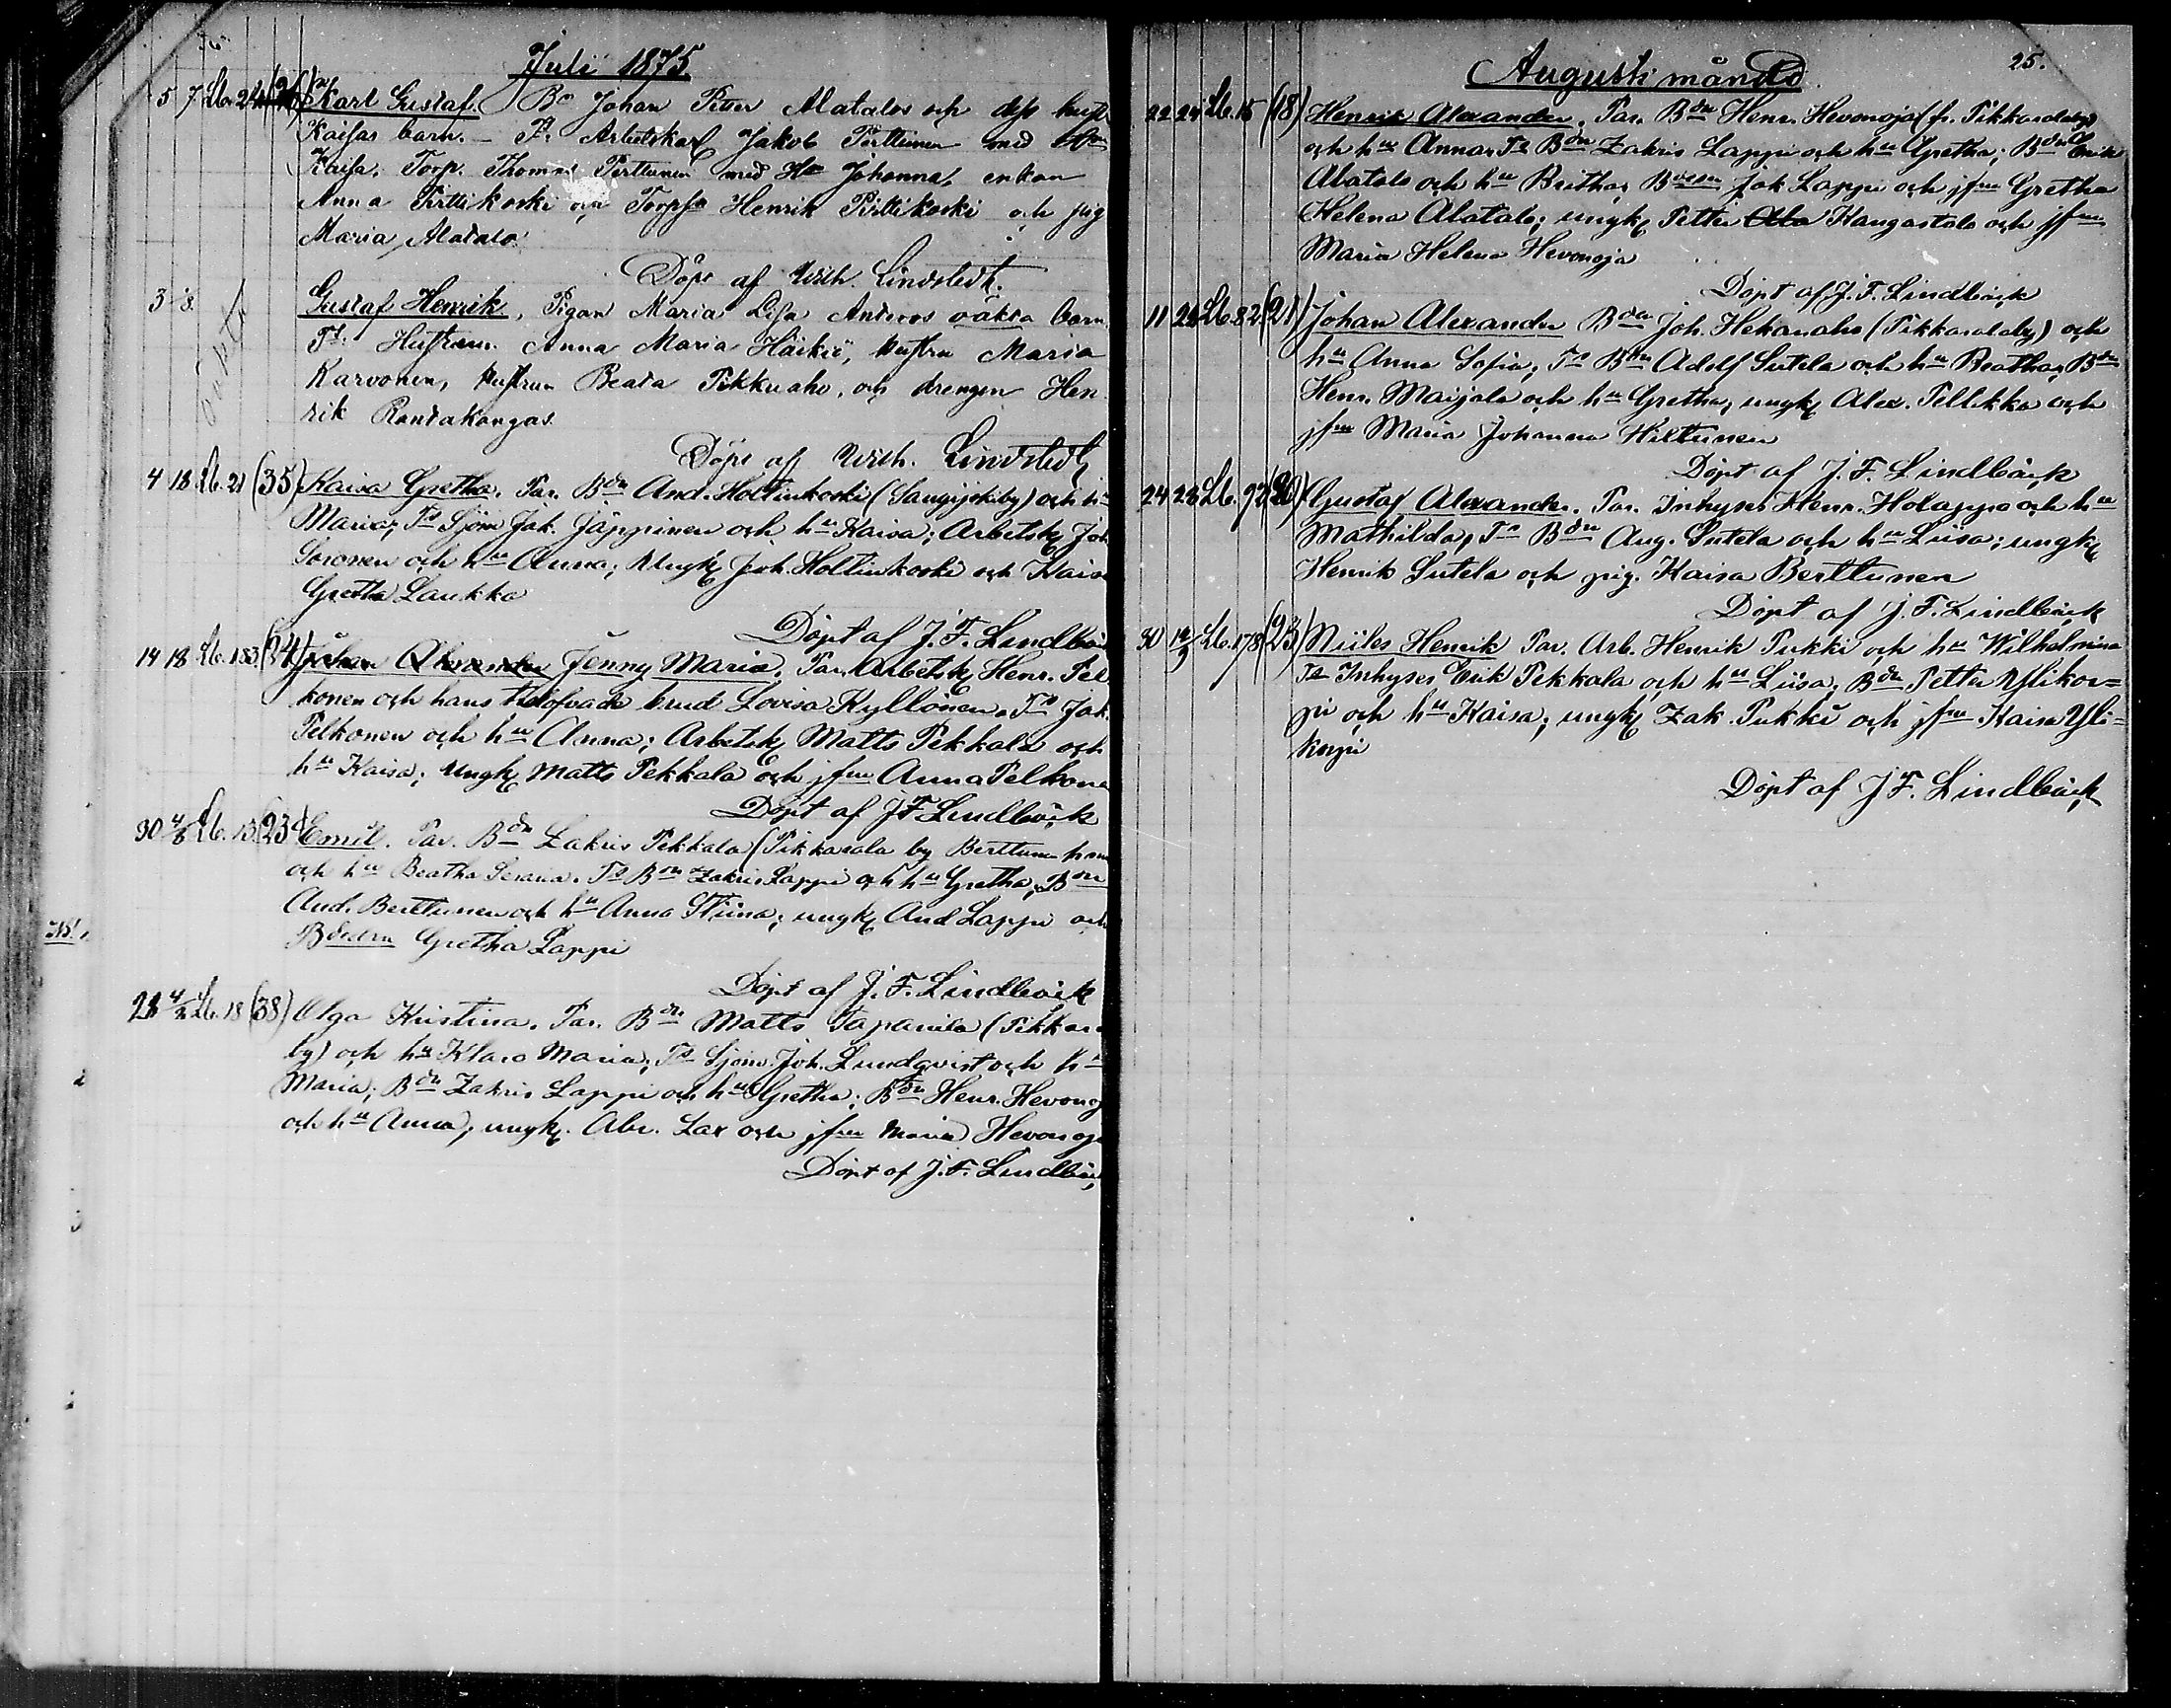 Juli 1875
5 7 Lb. 24 (26) Karl Gustaf. Bn Johan Petter Alatalos och dess hustr
Kaisas barn. – Ts Arbetskarl Jakob Perttunen med Hu
Kaisa, Torp. Thomas Perttunen med Hu Johanna, enkan
Anna Pirttikoski och Torpsn Henrik Pirttikoski och pig
Maria Alatalo
Döpt af Wilh. Lindstedt.
3 8 oäkta Gustaf Henrik, Pigan Maria Lisa Anteros oäkta barn
Ts: Hustrun Anna Maria Häikiö, hustru Maria
Karvonen, hustrun Beata Pikkuaho, och drengen Hen
rik Rantakangas
Döpt af Wilh. Lindstedt
4 18 Lb. 21 (35) Kaisa Gretha. Par. Bdn And. Hottinkoski (Sangijokiby) och hu
Maria, Ts Sjöm Jak. Jäppinen och hu Kaisa; Arbetsk Joh
Soronen och hu Anna; Ungk Joh. Hottinkoski och Kaisa
Gretha Laukka
Döpt af J. F. Lindbäck
14 18 Lb. 153 (24) Johan Alexander Jenny Maria. Par. Arbetsk Henr. Pel
konen och hans trolofvade brud Lovisa Kyllönen. Ts Jak.
Pelkonen och hu Anna; Arbetsk Matts Pekkala och
hu Kaisa; Ungk Matts Pekkala och jfru Anna Pelkone
Döpt af J F Lindbäck
30 4/8 Lb. 13 (23) Emil. Par. Bdn Zakris Pekkala (Pikkarala by Berttunen hem
och hu Beatha Serania. Ts Bdn Zakris Lappi och hu Gretha; Bdn
And. Berttunen och hu Anna Stiina; ungk And Lappi och
Bdedtn Gretha Lappi
Döpt af J. F. Lindbäck
28 4/8 Lb. 18 (38) Olga Kristina. Par. Bdn Matts Tapanila (Pikkar
by) och hu Klara Maria; Ts Sjöm. Joh. Lundqvist och hu
Maria; Bdn Zakris Lappi och hu Gretha; Bdn Henr. Hevonoj
och hu Anna; ungk. Abr. Lax och jfru Maria Hevonoja
Döpt af J. F. Lindbäck
25.
Augusti månad
22 24 Lb. 15 (18) Henrik Alexander. Par. Bdn Henr. Hevonoja (fr. Pikkaralaby)
och hu Anna. Ts Bdn Zakris Lappi och hu Gretha; Bdn Erik
Alatalo och hu Britha; Bdesn Jak Lappi och jfru Gretha
Helena Alatalo; ungk Petter Ala Kangastalo och jfru
Maria Helena Hevonoja
Döpt af J. F. Lindbäck
11 28 Lb. 82 (21) Johan Alexander Bdn Joh. Hekanaho (Pikkaralaby) och
hu Anna Sofia; Ts Bdn Adolf Sutela och hu Beatha; Bdn
Henr. Maijala och hu Gretha; ungk Alex. Pellikka och
jfru Maria Johanna Hiltunen
Döpt af J. F. Lindbäck
24 28 Lb. 92 (20) Gustaf Alexander. Par. Inhyses Henr. Holappa och hu
Mathilda; Ts Bdn Aug. Sutela och hu Liisa; ungk
Henrik Sutela och pig. Kaisa Berttunen
Döpt af J. F. Lindbäck
30 12/9 Lb. 178 (23) Niiles Henrik Par. Arb. Henrik Pukki och hu Wilhelmina
Ts Inhyses Erik Pekkala och hu Liisa; Bdn Petter Ylikor=
pi och hu Kaisa; ungk Zak. Pukki och jfru Kaisa Yli=
korpi
Döpt af J F. Lindbäck